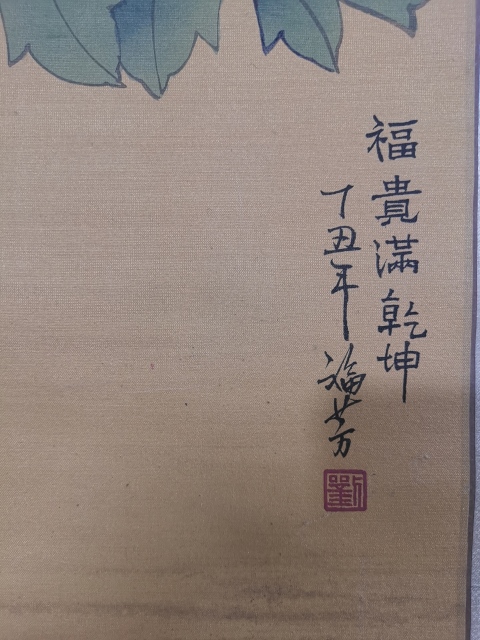 福貴滿乾坤
丁丑年福芳
劉